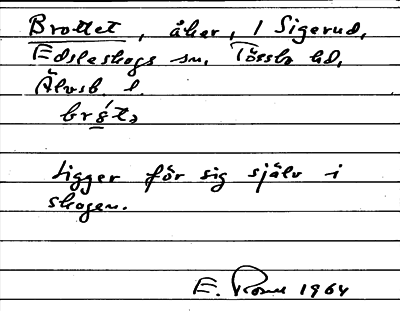 Brottet, åker, / Sigerud,
Edsleskogs sn. Tössbo hd,
Älvsb. l.
Ligger för sig själv i
skogen.
E. 1964